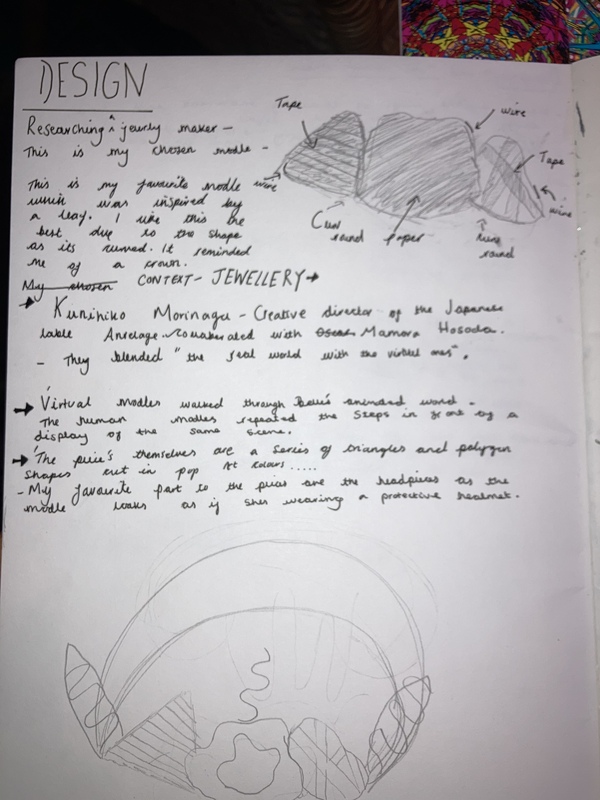 DESIGN
Researching ^ jewrly maker -
This is my chosen modle -
This is my favourite modle
which was inspired by
a leaf. I like this one
best due to the shape
as its curved. It reminded
me of a crown.
Tape
wire
Tape
wire
wire
Curve
round
Paper
round
My chosen CONTEXT - JEWELLERY →
→ Kunihiko Morinaga - Creative director of the Japanese
lable Anrelage. Collaberated with Mamora Hosoda.
- They blended "the real world with the virtual ones".
→ Virtual modles walked through Belle's animated world.
The human modles repeated the steps in front of a
display of the same scene.
→ The peice's themselves are a series of triangles and polygon
shapes cut in pop Art colours .....
- My favourite part to the peices are the headpieces as the
modle looks as if shes wearing a protective healmet.